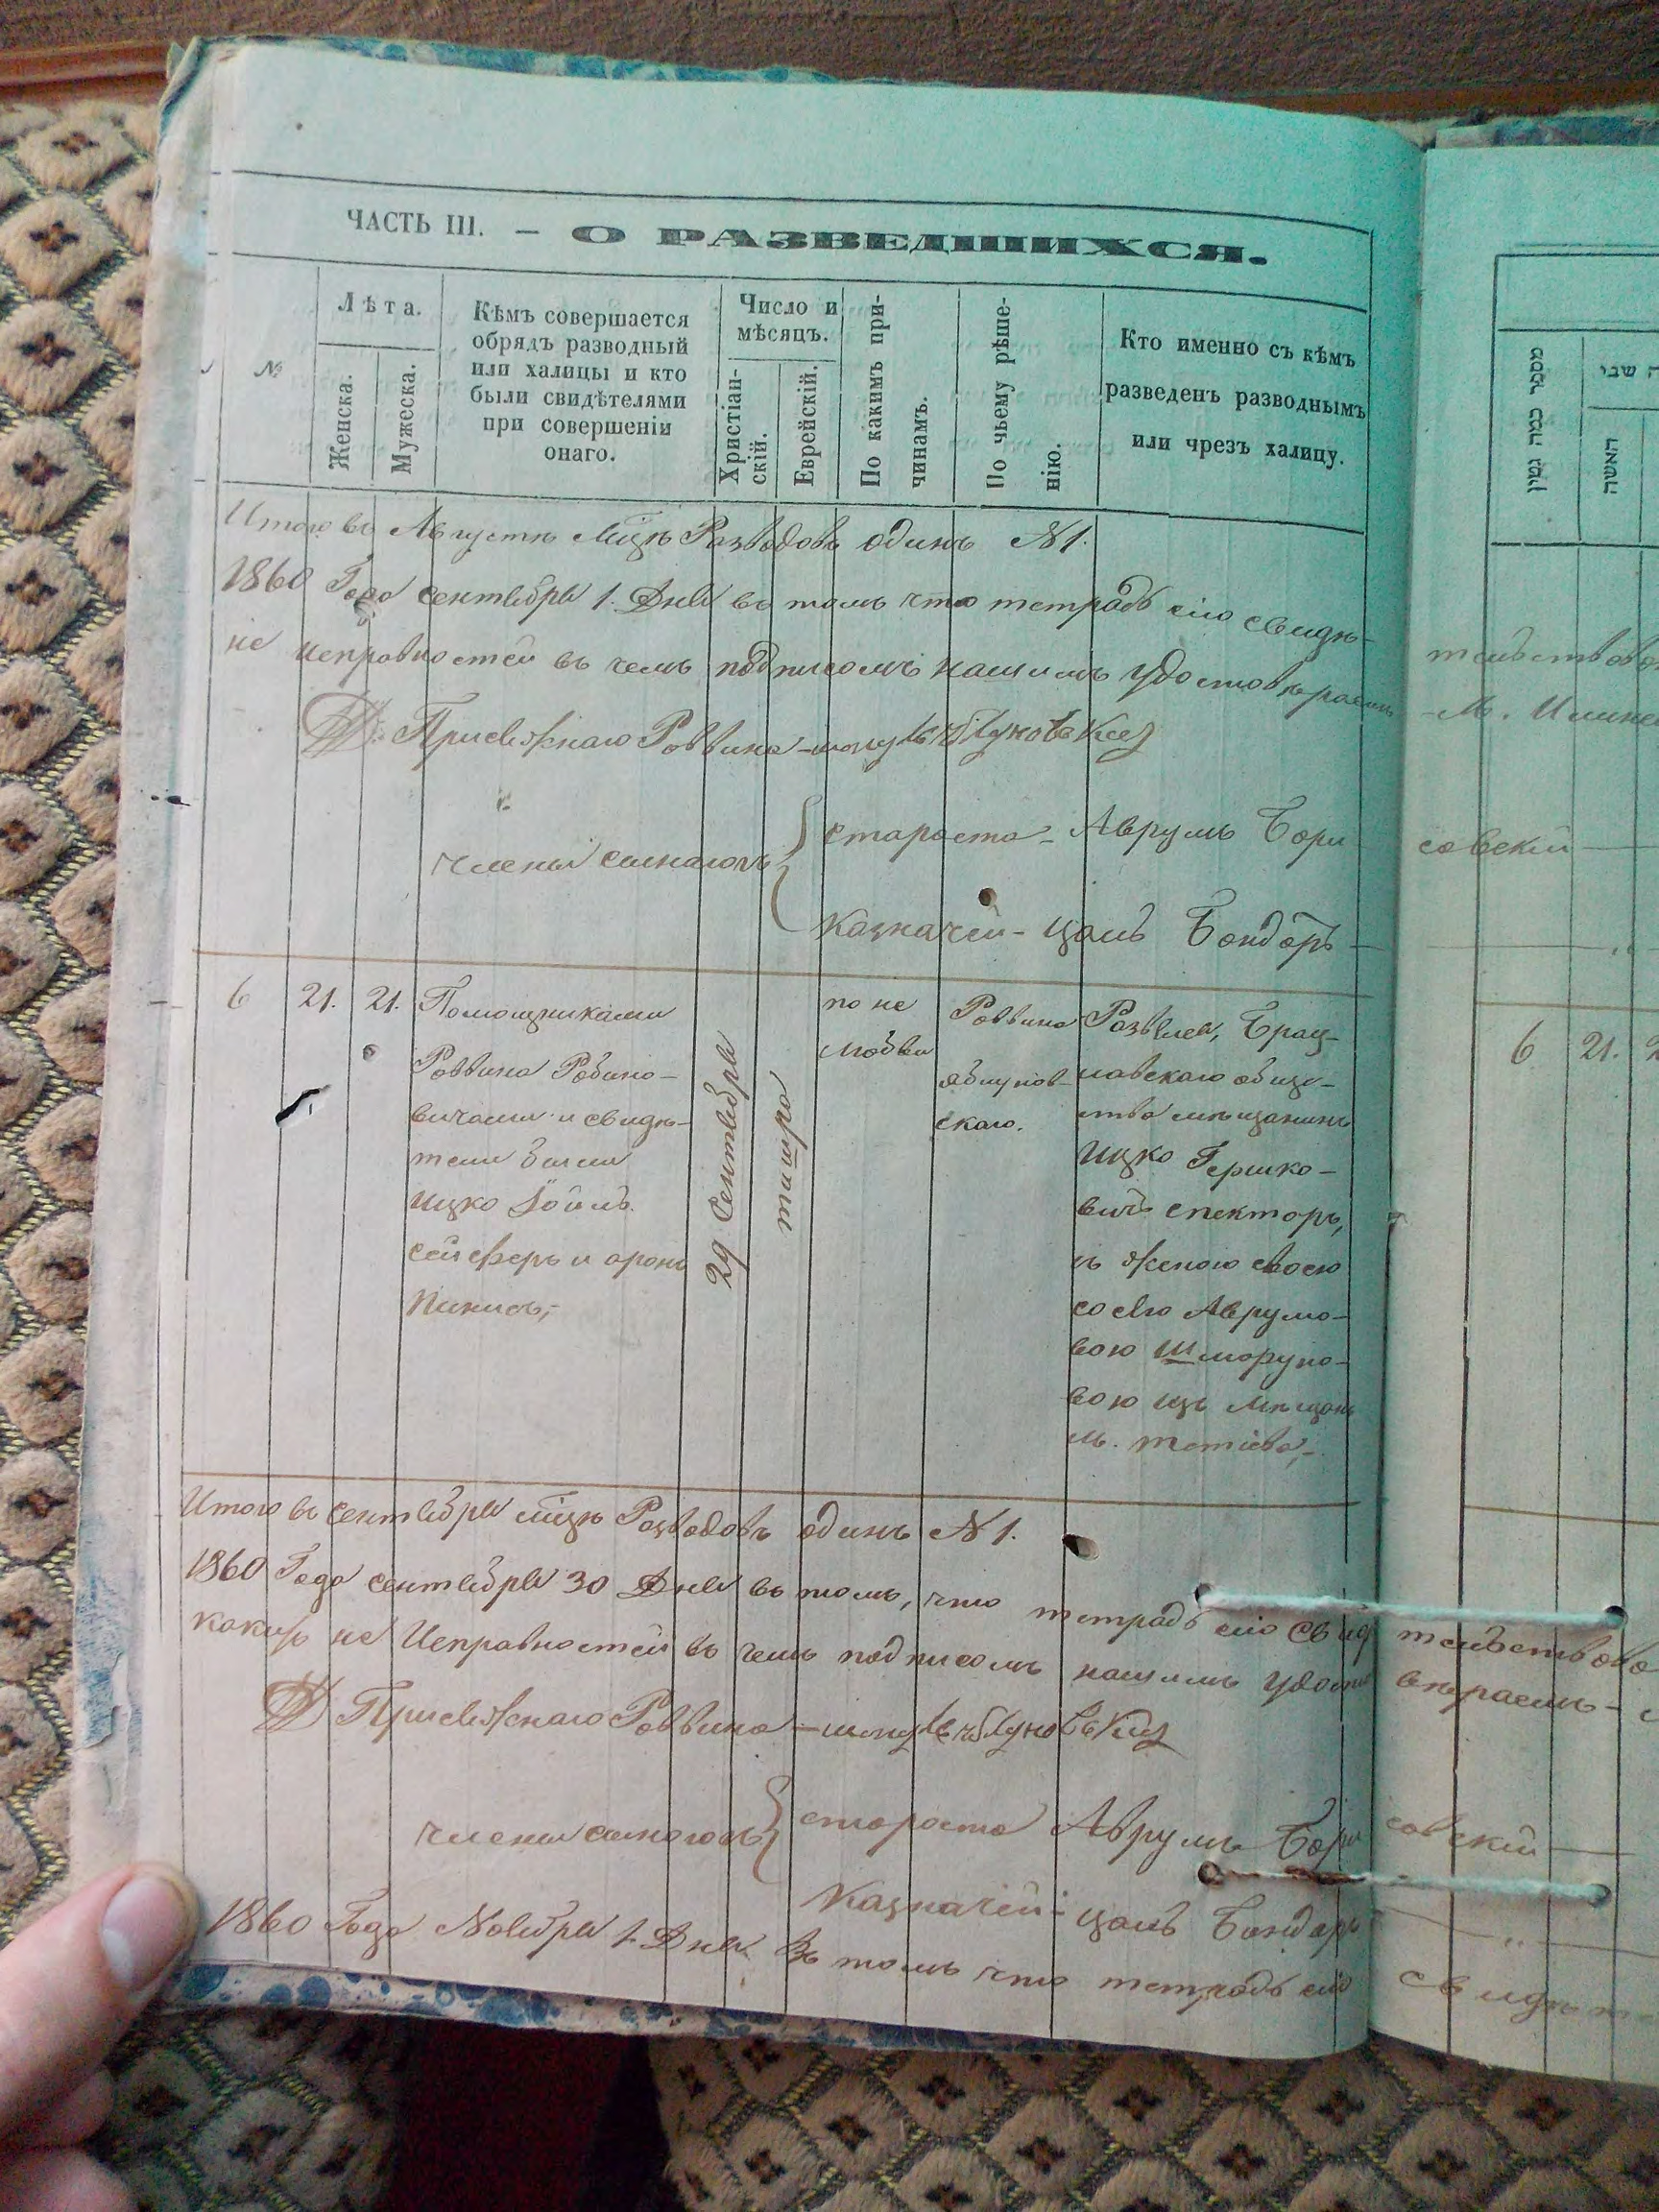 ЧАСТЬ III. — О РАЗВЕДШИХСЯ.
№
Лѣта.
Женска.
Мужеска.
Кѣмъ совершается
обрядъ разводный
или халицы и кто
были свидѣтелями
при совершеніи
онаго.
Число и
мѣсяцъ.
Христіан-
скій.
Еврейскій.
По какимъ при-
чинамъ.
По чьему рѣше-
нію.
Кто именно съ кѣмъ
разведенъ разводнымъ
или чрезъ халицу.
Итого въ Августѣ мцѣ Разводовъ одинъ №1.
1860 Года сентября 1. Дня въ томъ что тетрадь сію свидѣ-
не исправностей въ чемъ подписомъ нашимъ удостовѣряемъ
Присяжнаго Раввина
члены синагоги
староста - Аврумъ Бори
казначей - Цаль Бондарь
6
21.
21.
Помощниками
Раввина Рабино-
вичами и свидѣ-
тели были
Ицко Іойль
сейферъ и аронъ
Пинисъ,-
29 Сентября
тишра
по не
любви
Раввина
яблунов-
скаго.
Развелся, Брац-
лавскаго обще-
ства мѣщанинъ
Ицко Гершко-
вичъ спекторъ,
съ женою своею
сосею Аврумо-
вою Шморуно-
вою изъ мѣщанъ
м. тетіева,-
Итого въ сентябрѣ мцѣ Разводовъ одинъ №1.
1860 Года сентября 30 Дня въ томъ, что тетрадь сію свид
какихъ не Исправностей въ чемъ подписомъ нашимъ удосто
Присяжнаго Раввина
члены синагоги
староста Аврумъ Бори
казначей - цаль Бондарь
1860 Года Ноября 1 Дня въ томъ что тетрадь сію
מספר כמה גטין
האשה
שני
совскій
6
21.
вѣряемъ-
совскій